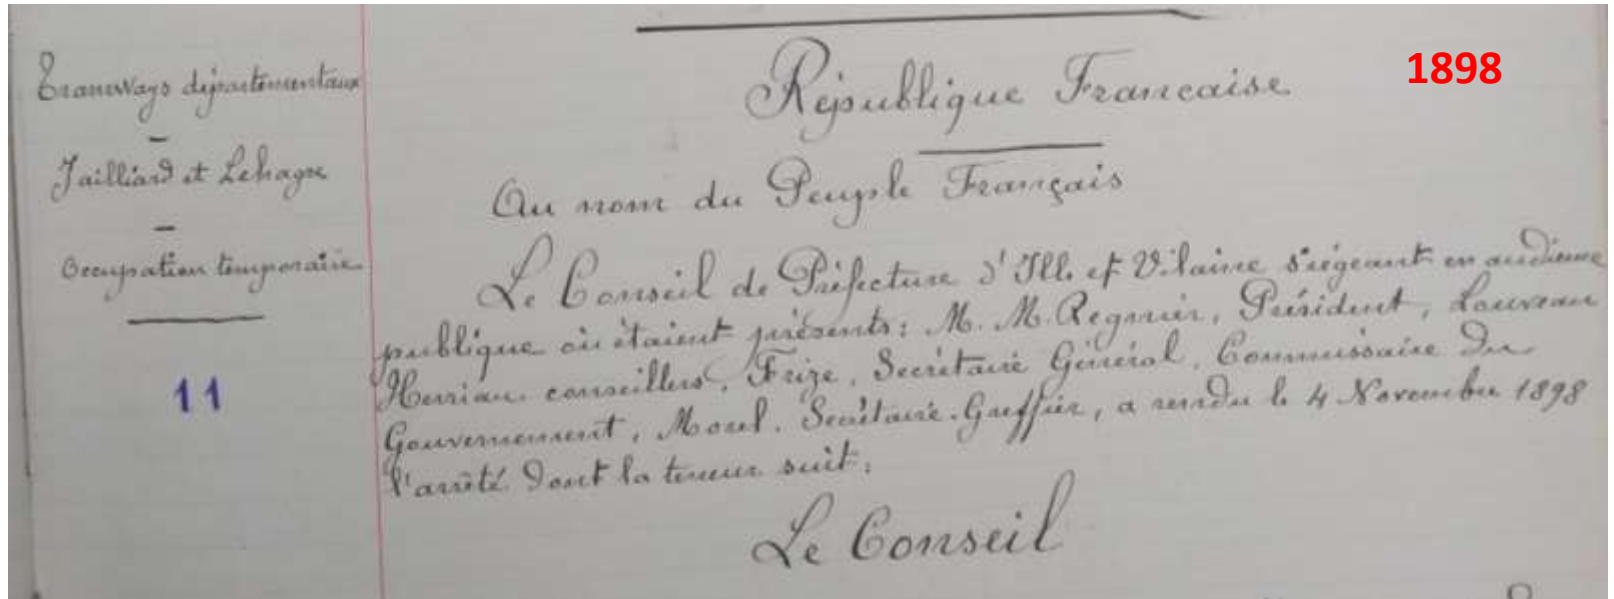 Tramways départementaux
-
Jailliard et Lehagre
-
Occupation temporaire
11
1898
République Française
Au nom du Peuple Français
Le Conseil de Préfecture d'Ille et Vilaine siégeant en audience
publique où étaient présents : M. M. Regnier, Président, Louveau
conseillers, Frize, Secrétaire Général, Commissaire du
Gouvernement, Morel, Secrétaire-Greffier, a rendu le 4 Novembre 1898
l'arrêté dont la teneur suit :
Le Conseil